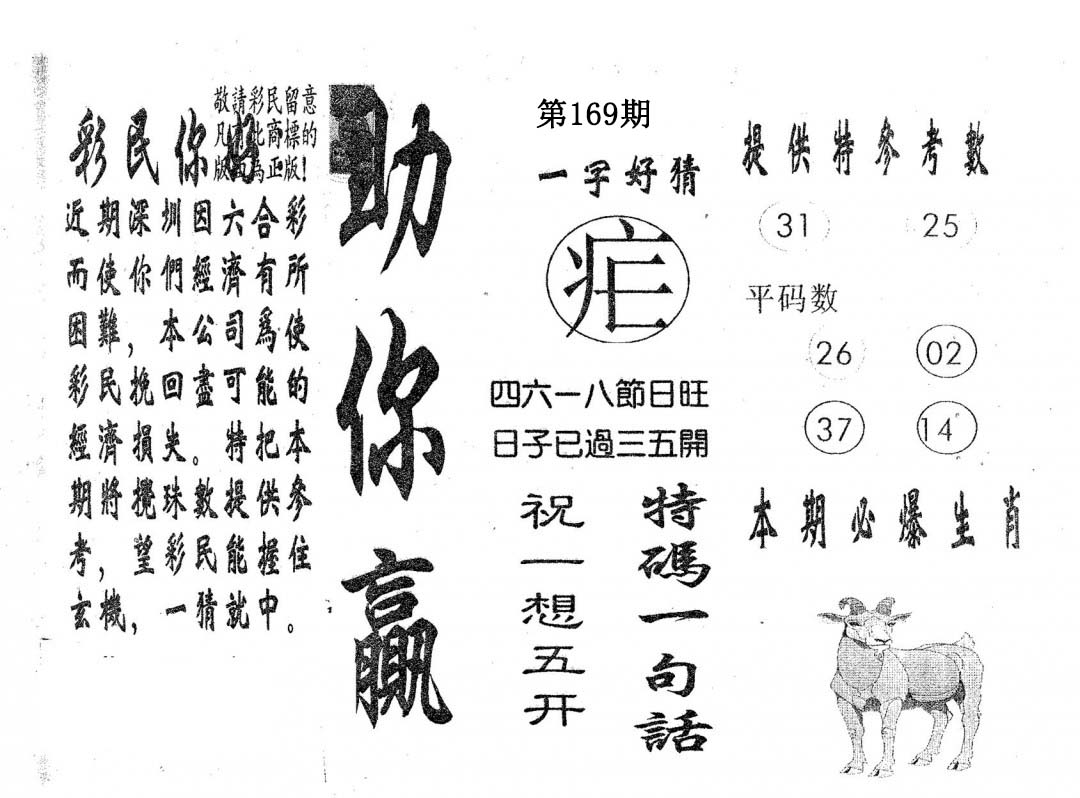 敬請彩民留意
凡有此商標的
版面為正版!
彩民你好
近期深圳因六合彩
而使你們經濟有所
困難，本公司爲使
彩民挽回盡可能的
經濟損失。特把本
期將攪珠數提供參
考，望彩民能握住
玄機，一猜就中。
助你贏
第169期
一字好猜
四六一八節日旺
日子已過三五開
特碼一句話
祝一想五开
提供特參考數
31 25
平码数
26 02
37 14
本期必爆生肖